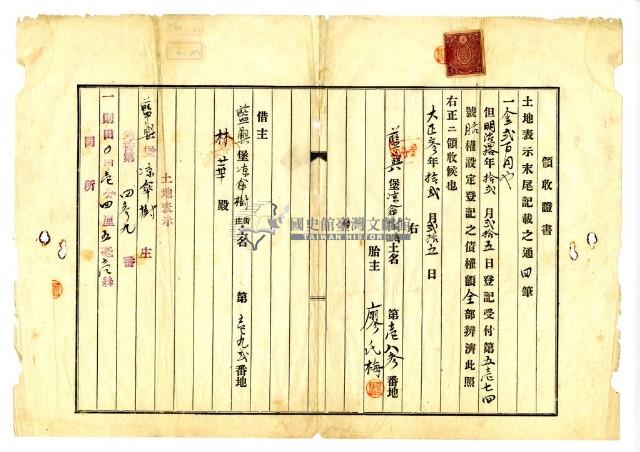 領收證書
土地表示末尾記載之通四筆
一金貳百円也
但明治拾年拾弐月弐拾五日登記受付第五壱七四
號胎權設定登記之債權額全部辨濟此照
右正ニ領收候也
大正參年拾弐月弐拾五日
右
藍興堡凉傘樹庄土名 第壱八參番地
胎主 廖氏梅
借主
藍興堡凉傘樹庄土名 第 番地
林華殿
土地表示
藍興堡凉傘樹庄
第四參九番
一則田0甲壱分四厘五毫
同所
國史館臺灣文獻館
TAIWAN HISTORICA